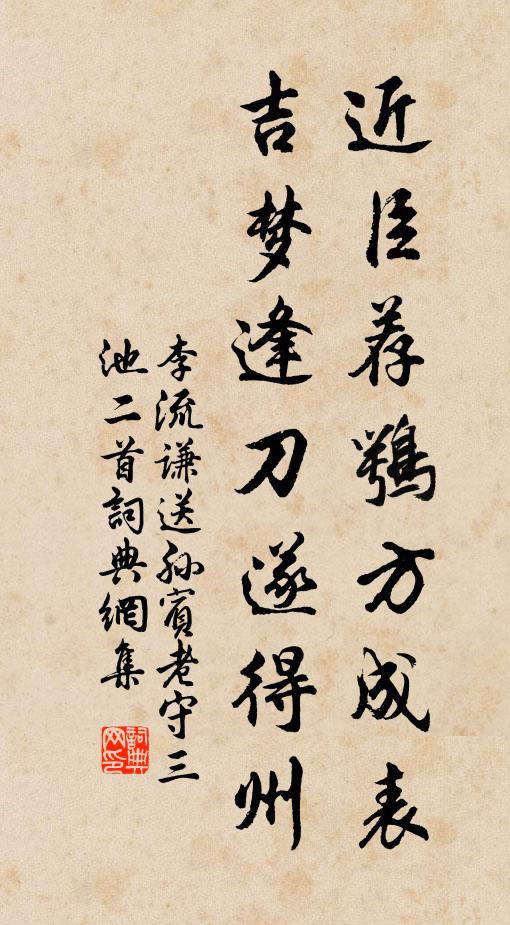 近臣荐鶚方成表
吉梦逢刀遂得州
李流謙送孙賓老守三
池二首詞典網集
詞典
网印